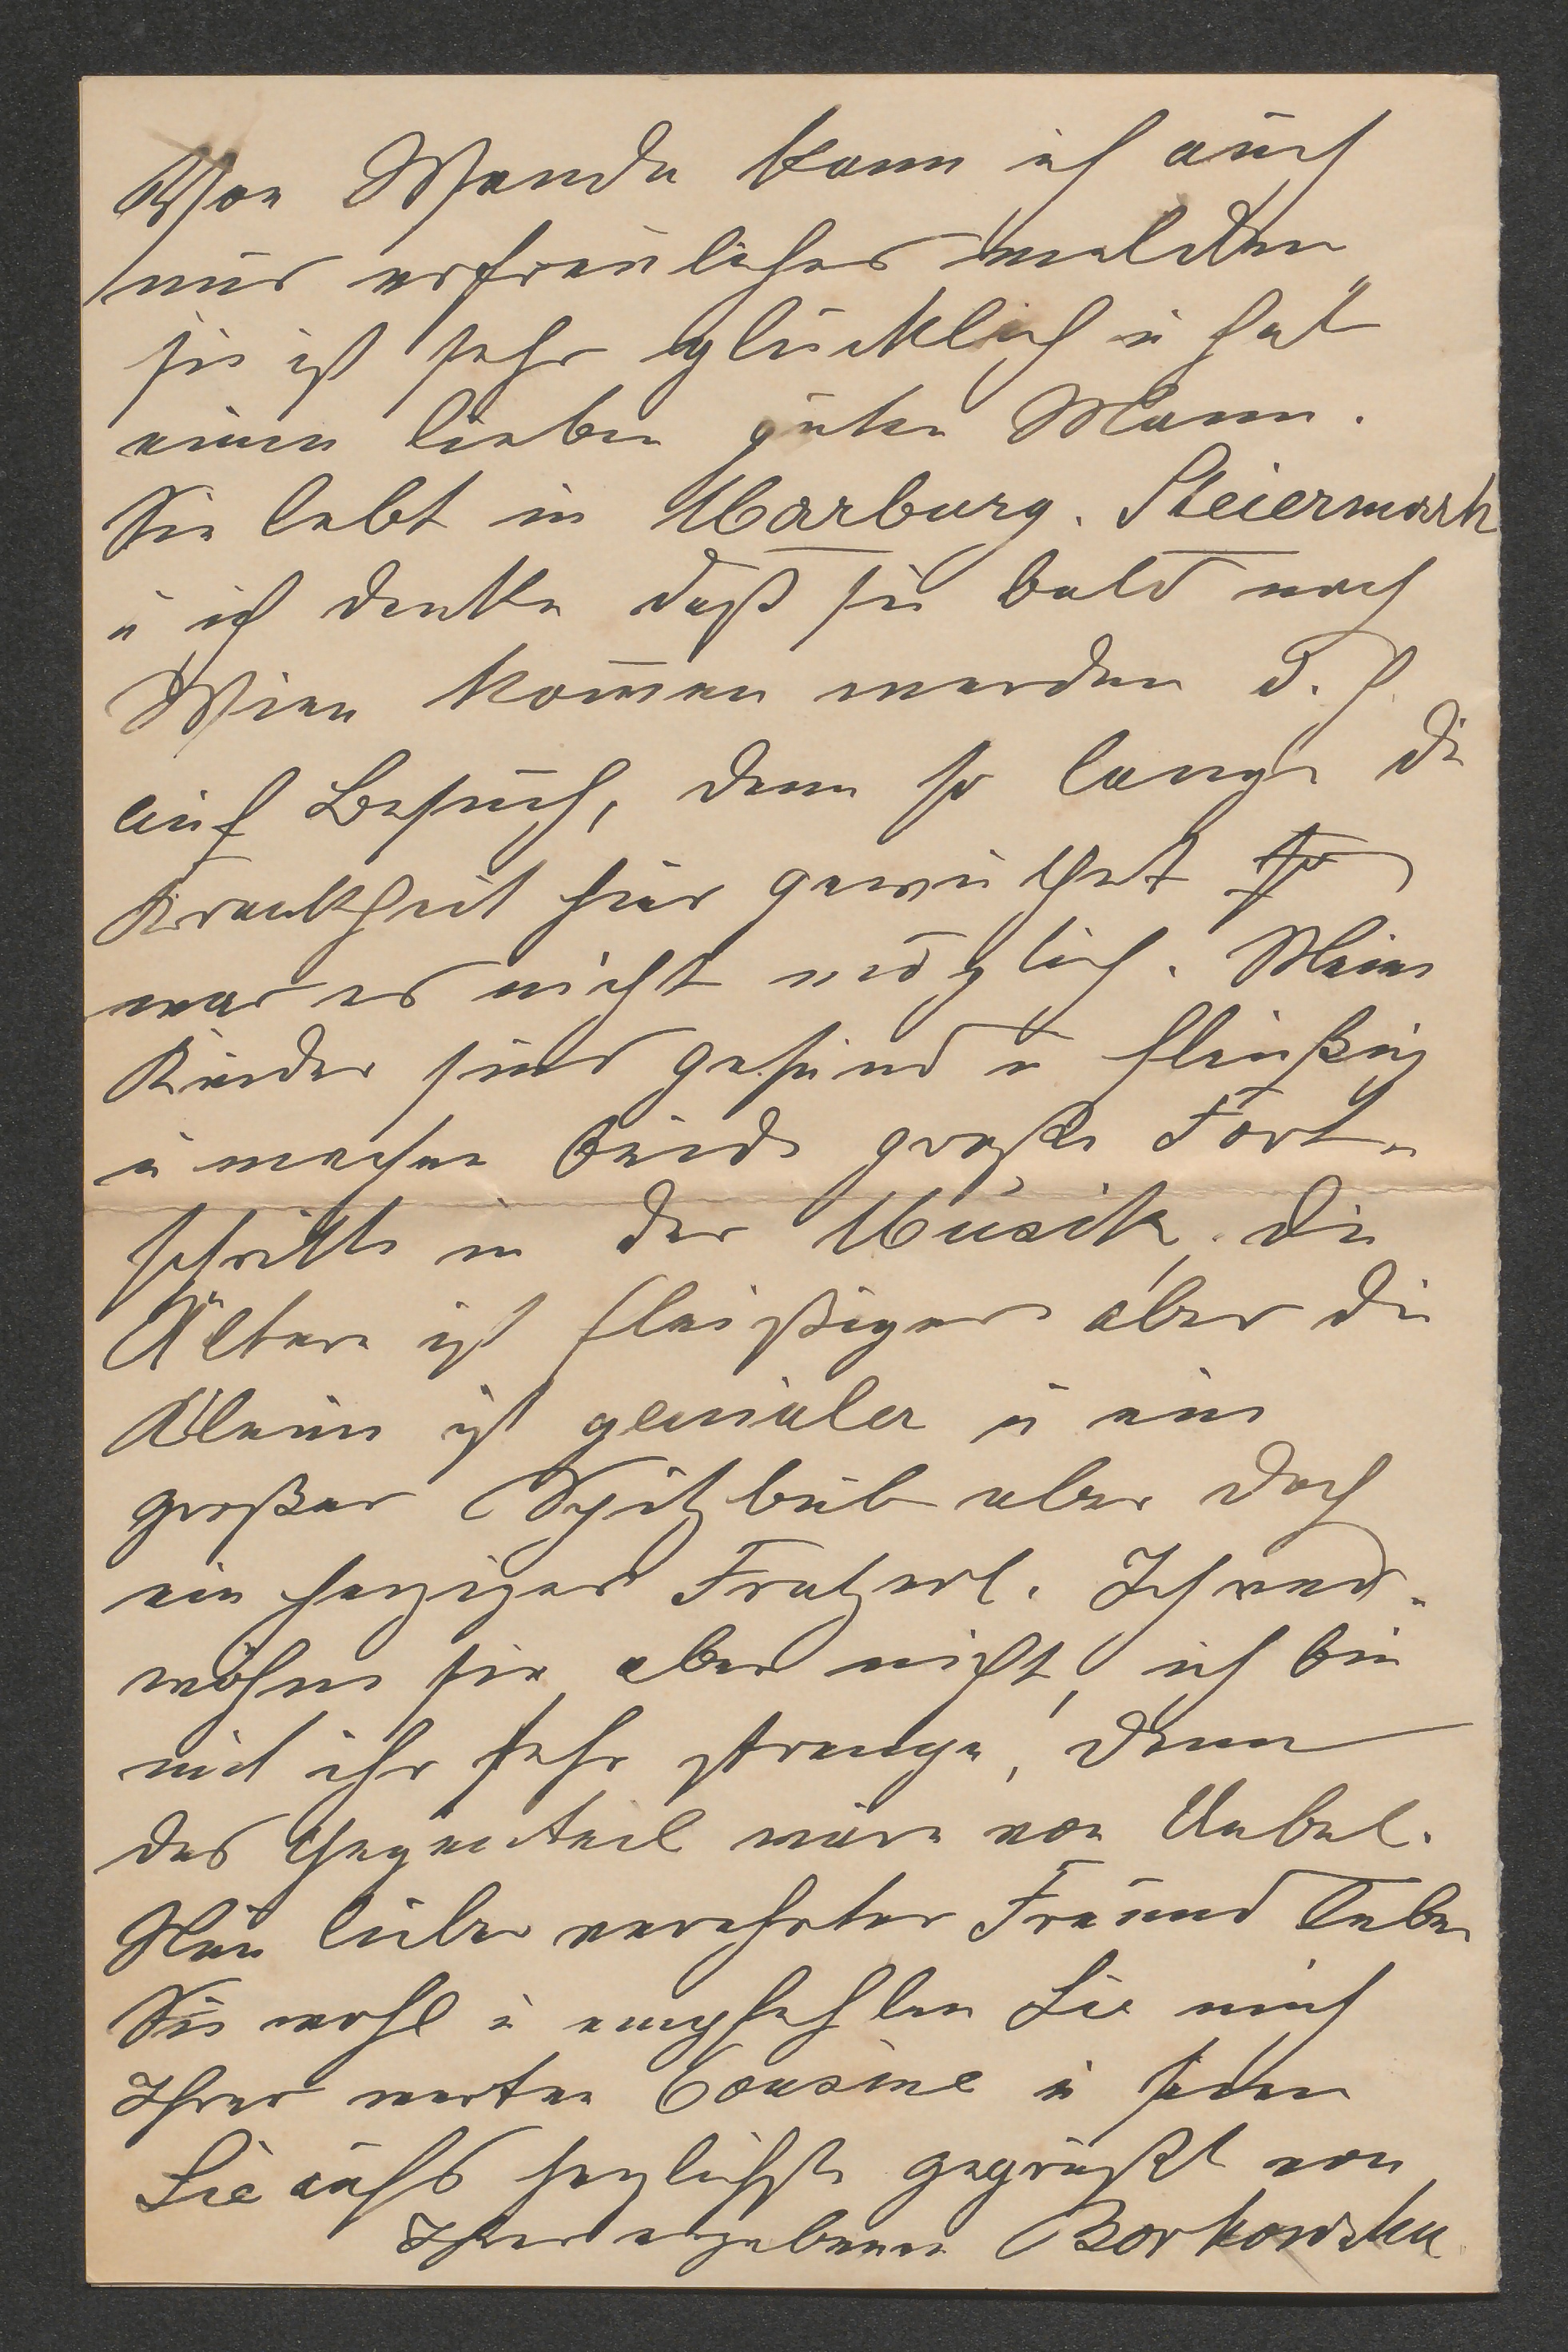 Von Wanda kann ich auch
nur erfreuliches melden
sie ist sehr glücklich u hat
einen lieben guten Mann.
Sie lebt in Marburg. Steiermark
u ich denke daß sie bald nach
Wien kom̄en werden d. h.
auf Besuch, denn so lange die
Krankheit hier gewüthet
war es nicht möglich. Meine
Kinder sind gesund u fleißig
u machen beide große Fort-
schritte in der Musik, die
Ältere ist fleißiger aber die
Kleine ist genialer u ein
großer Spitzbub aber doch
ein herziges Fratzerl. Ich ver-
wöhne sie aber nicht, ich bin
mit ihr sehr strenge, denn
das Gegenteil wäre von Uebel.
Nun lieber verehrter Freund leben
Sie wohl u empfehlen Sie mich
Ihrer werten Cousine u seien
Sie aufs herzlichste gegrüßt von
Ihrer ergebenen Borkowska